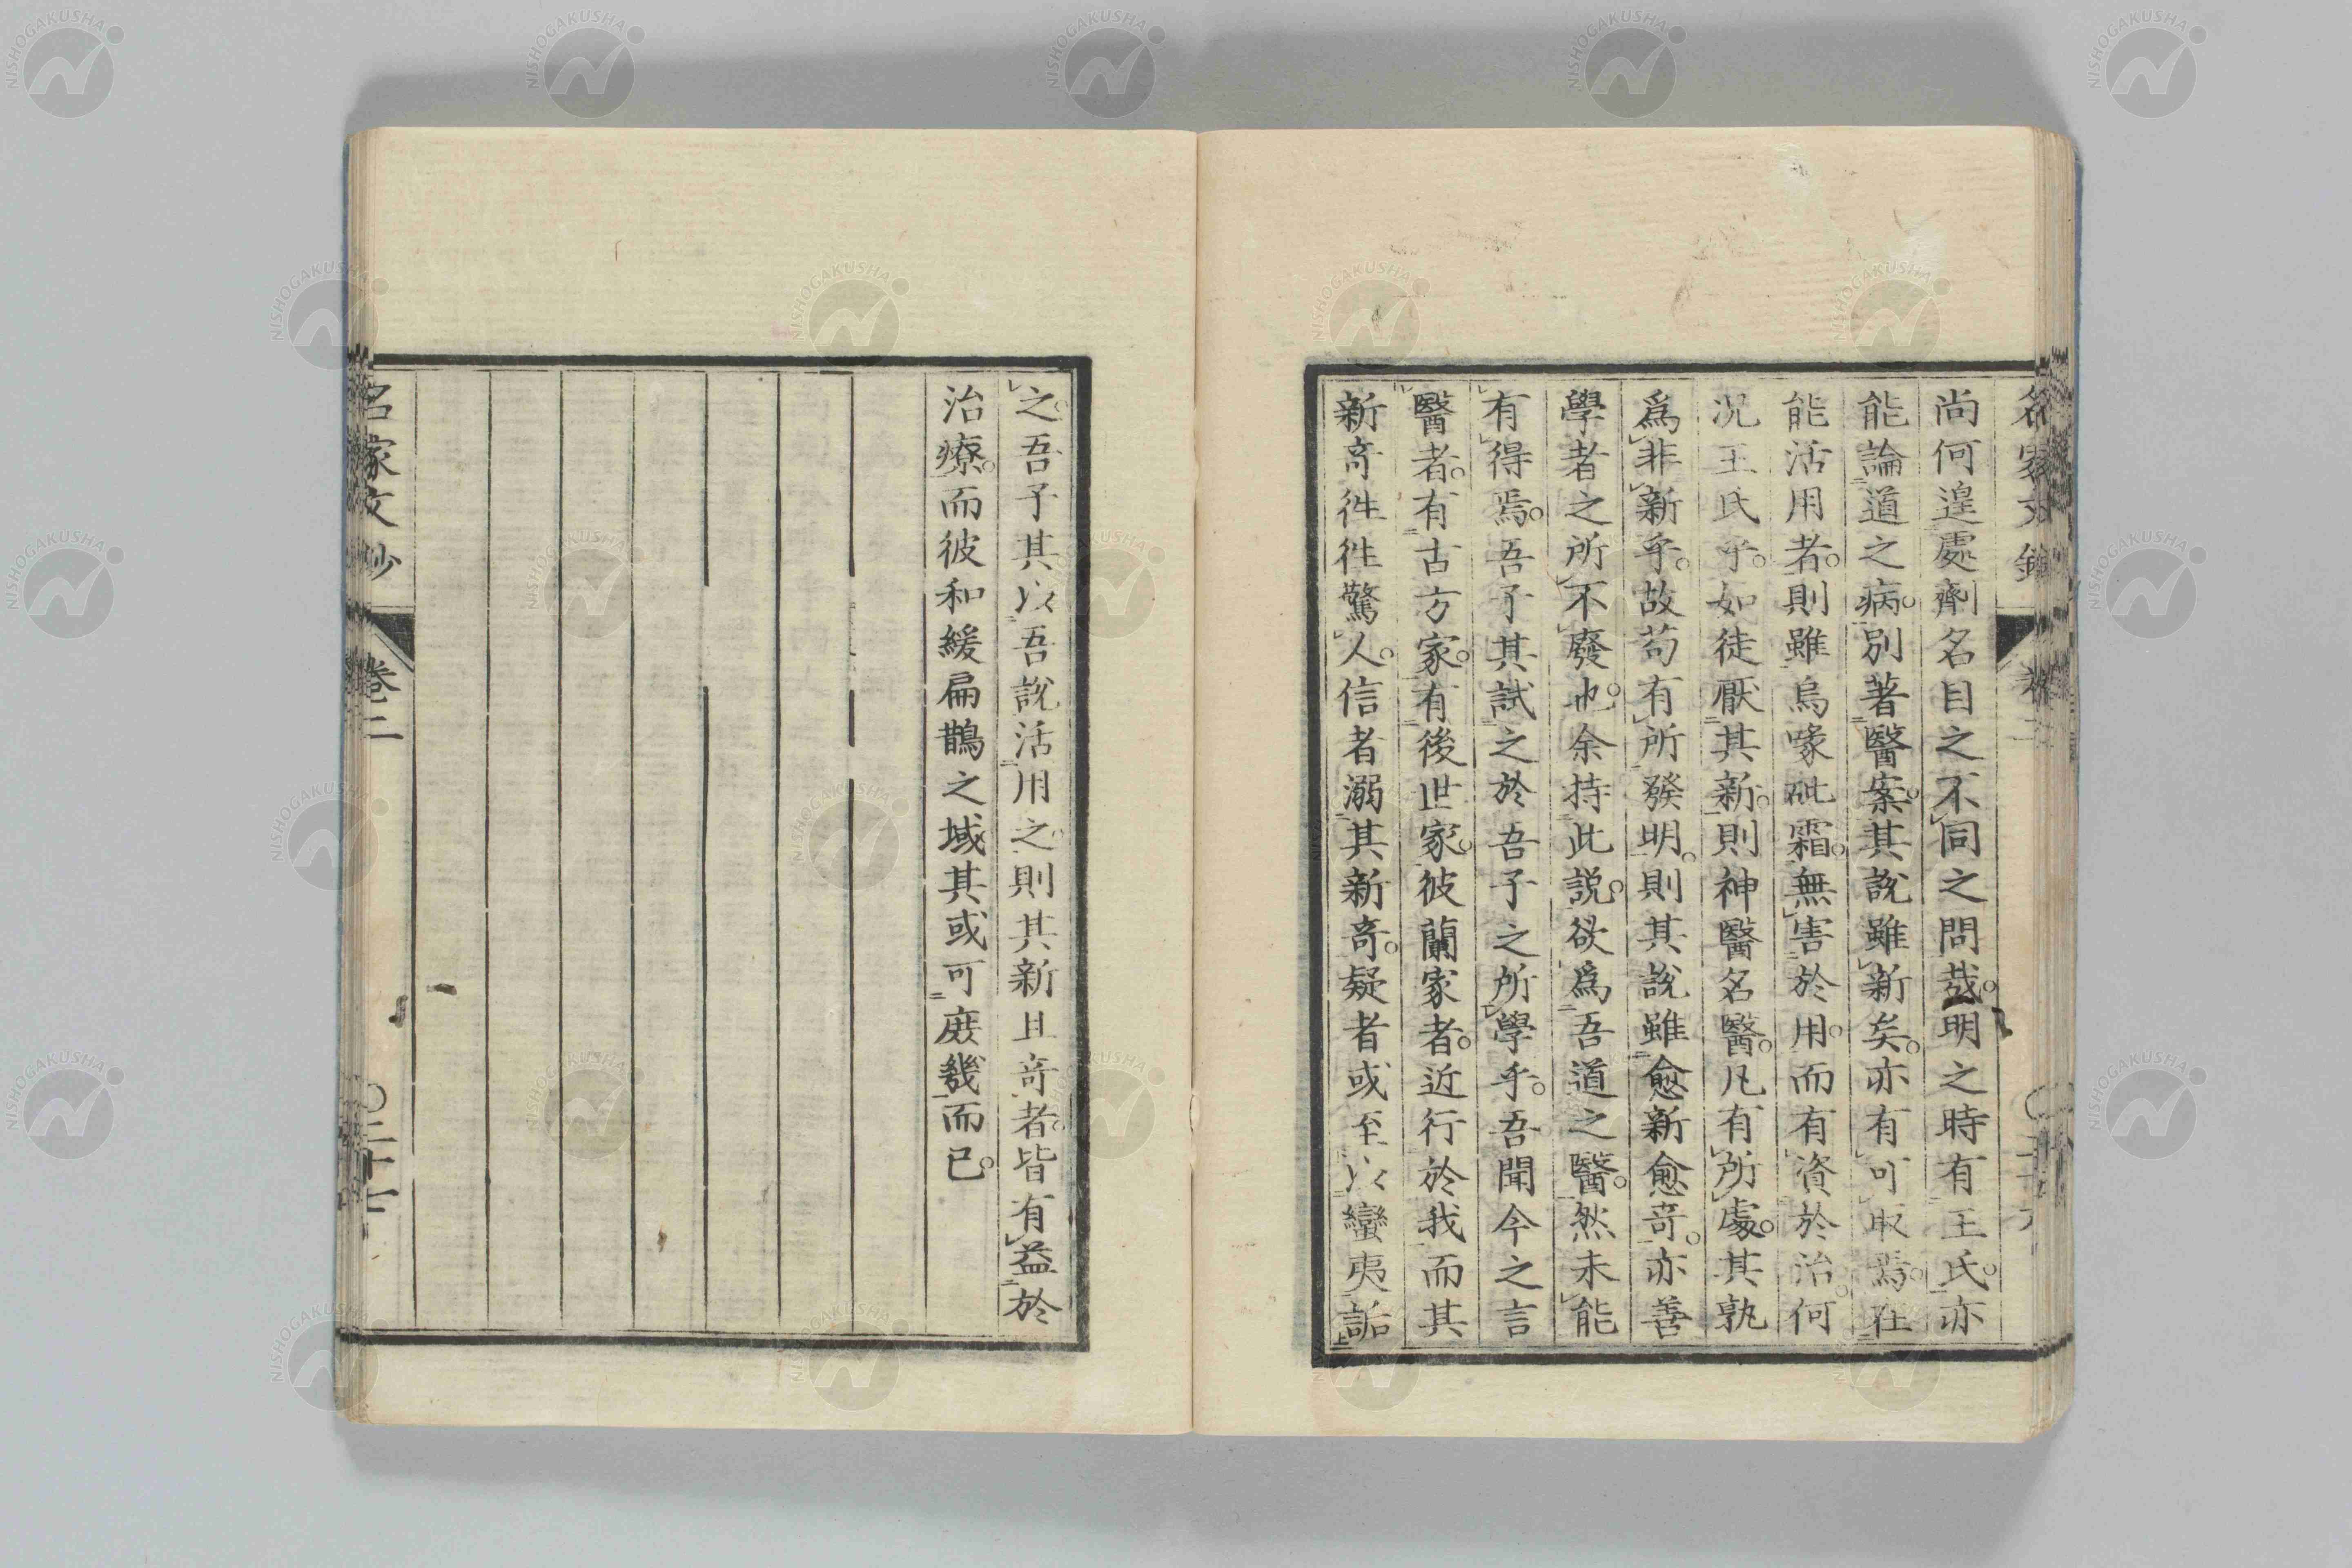 尚何遑處劑名目之不同之問哉。明之時有王氏。亦
能論道之病。別著醫案。其說雖新矣。亦有可取焉。在
能活用者。則雖烏喙砒霜。無害於用。而有資於治。何
況王氏乎。如徒厭其新。則神醫名醫。凡有所處。其孰
爲非新乎。故苟有所發明。則其說雖愈新愈奇。亦善
學者之所不廢也。余持此説。欲爲吾道之醫。然未能
有得焉。吾子其試之於吾子之所學乎。吾聞今之言
醫者。有古方家。有後世家。彼蘭家者。近行於我而其
新奇徃徃驚人。信者溺其新奇。疑者或至以蠻夷詬
之。吾子其以吾說活用之。則其新且奇者。皆有益於
治療。而彼和緩扁鵲之域。其或可庶幾而已。
名家文抄
卷二
〇二十七
NISHOGAKUSHA